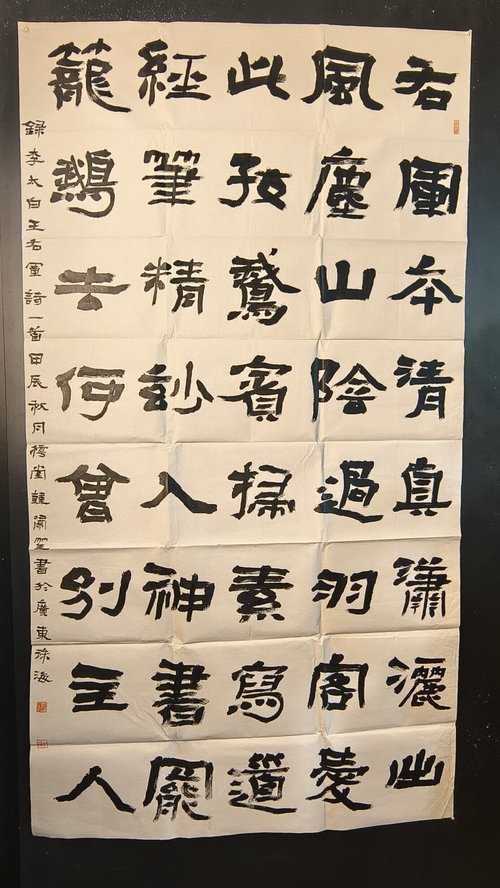 右軍本清真瀟灑出
風塵山陰過羽客愛
此好鵞賓掃素寫道
經筆精妙入神書罷
籠鵝去何曾別主人
錄李太白王右軍詩一首甲辰秋月書於廣東珠海